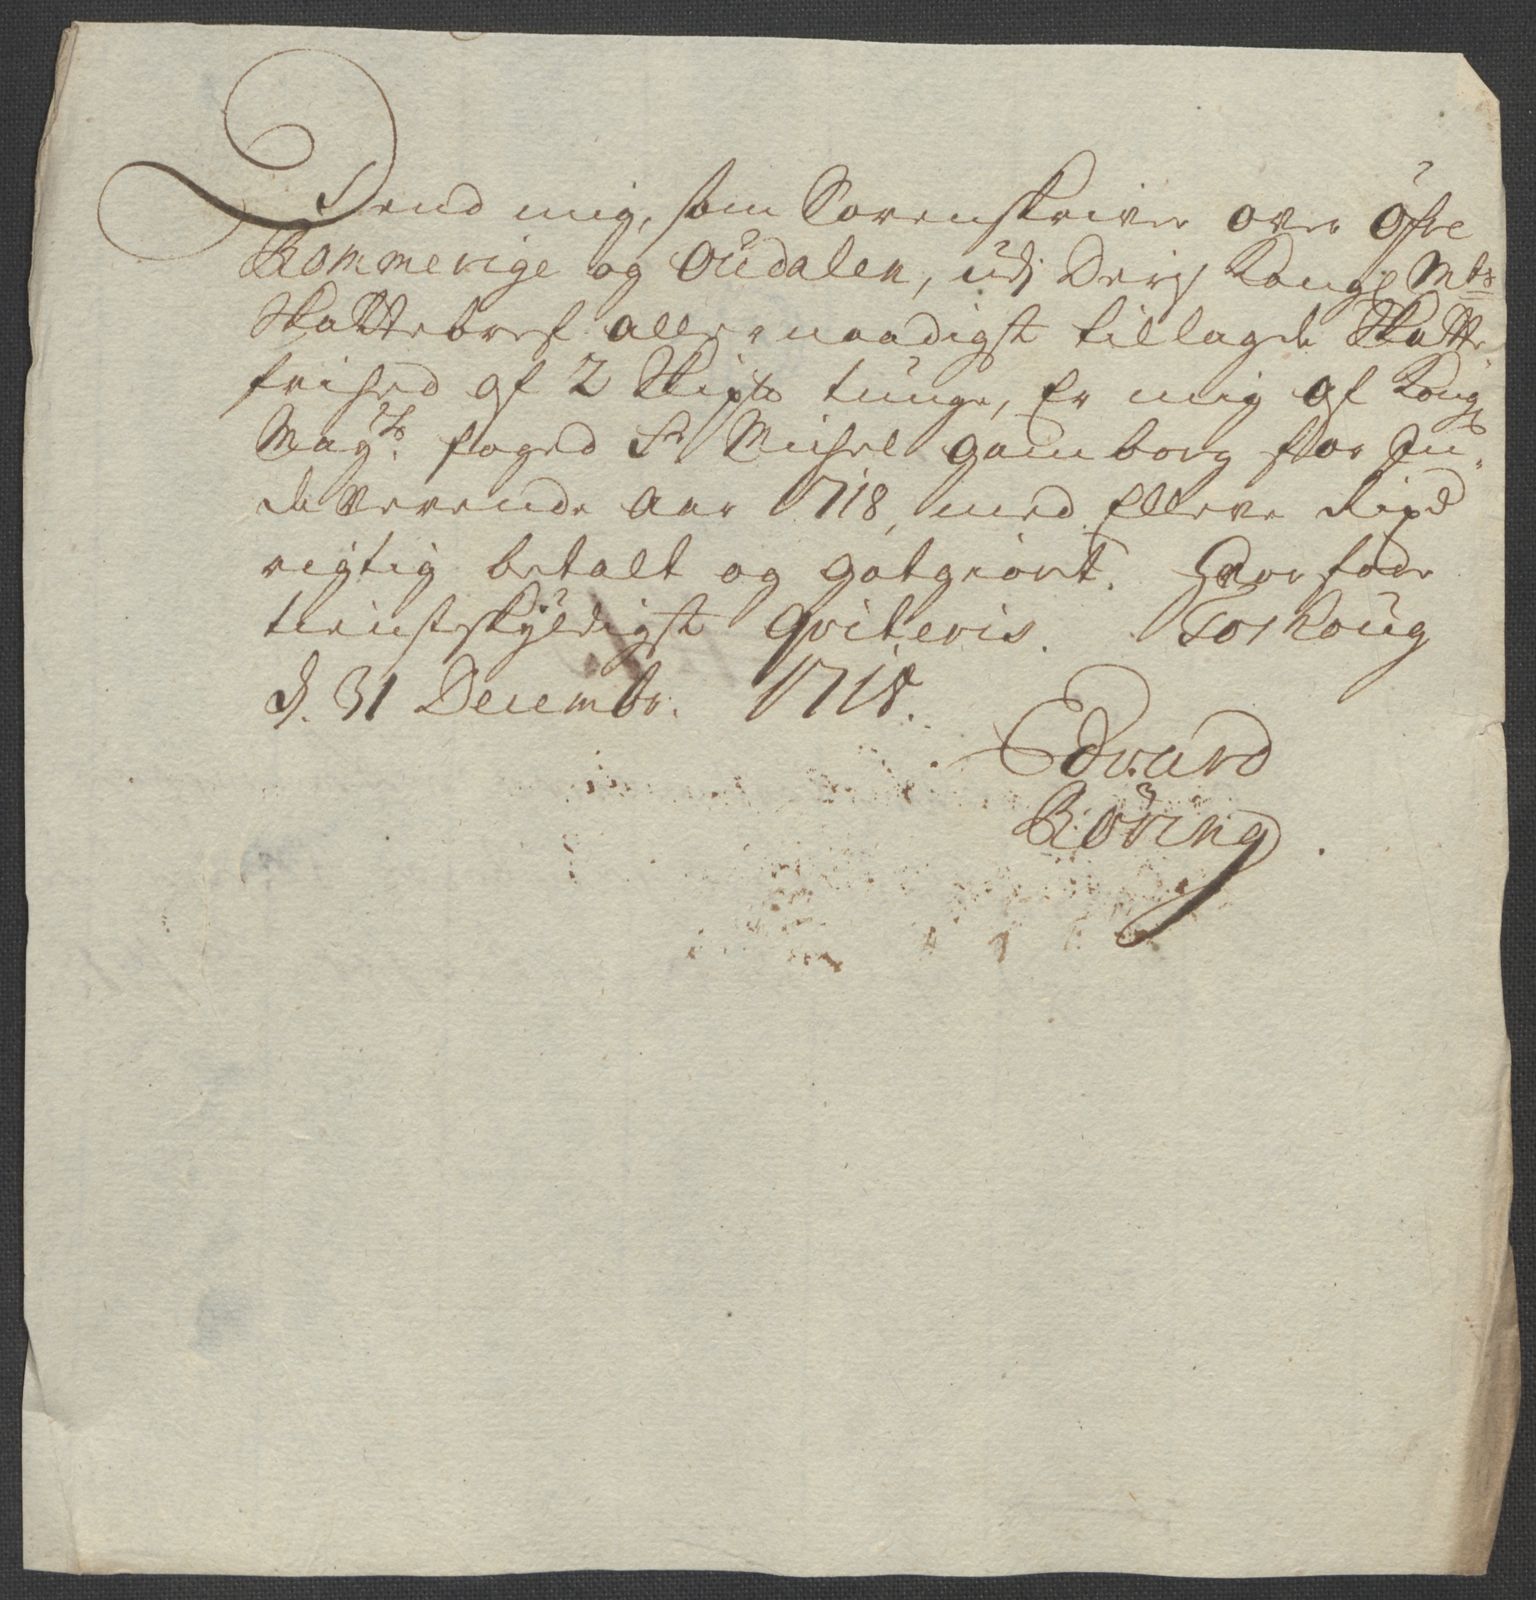 Dend mig, som Sorenskriver over Öfre
Rommerige og Oudalen, udj Deris Kongl Mts
Skattebref allernaadigst tillagde Skatte
frihed af 2 Skipd tunge, Er mig af Kongl
Mayts foged Sr Michel Gamborg for In„
deverende Aar 1718, med Elleve Rixd
rigtig betalt og gotgiort. Hvorfore
tienstskyldigst Qviteris. Torshoug
d. 31 Decembr. 1718.
Edvard
Röring